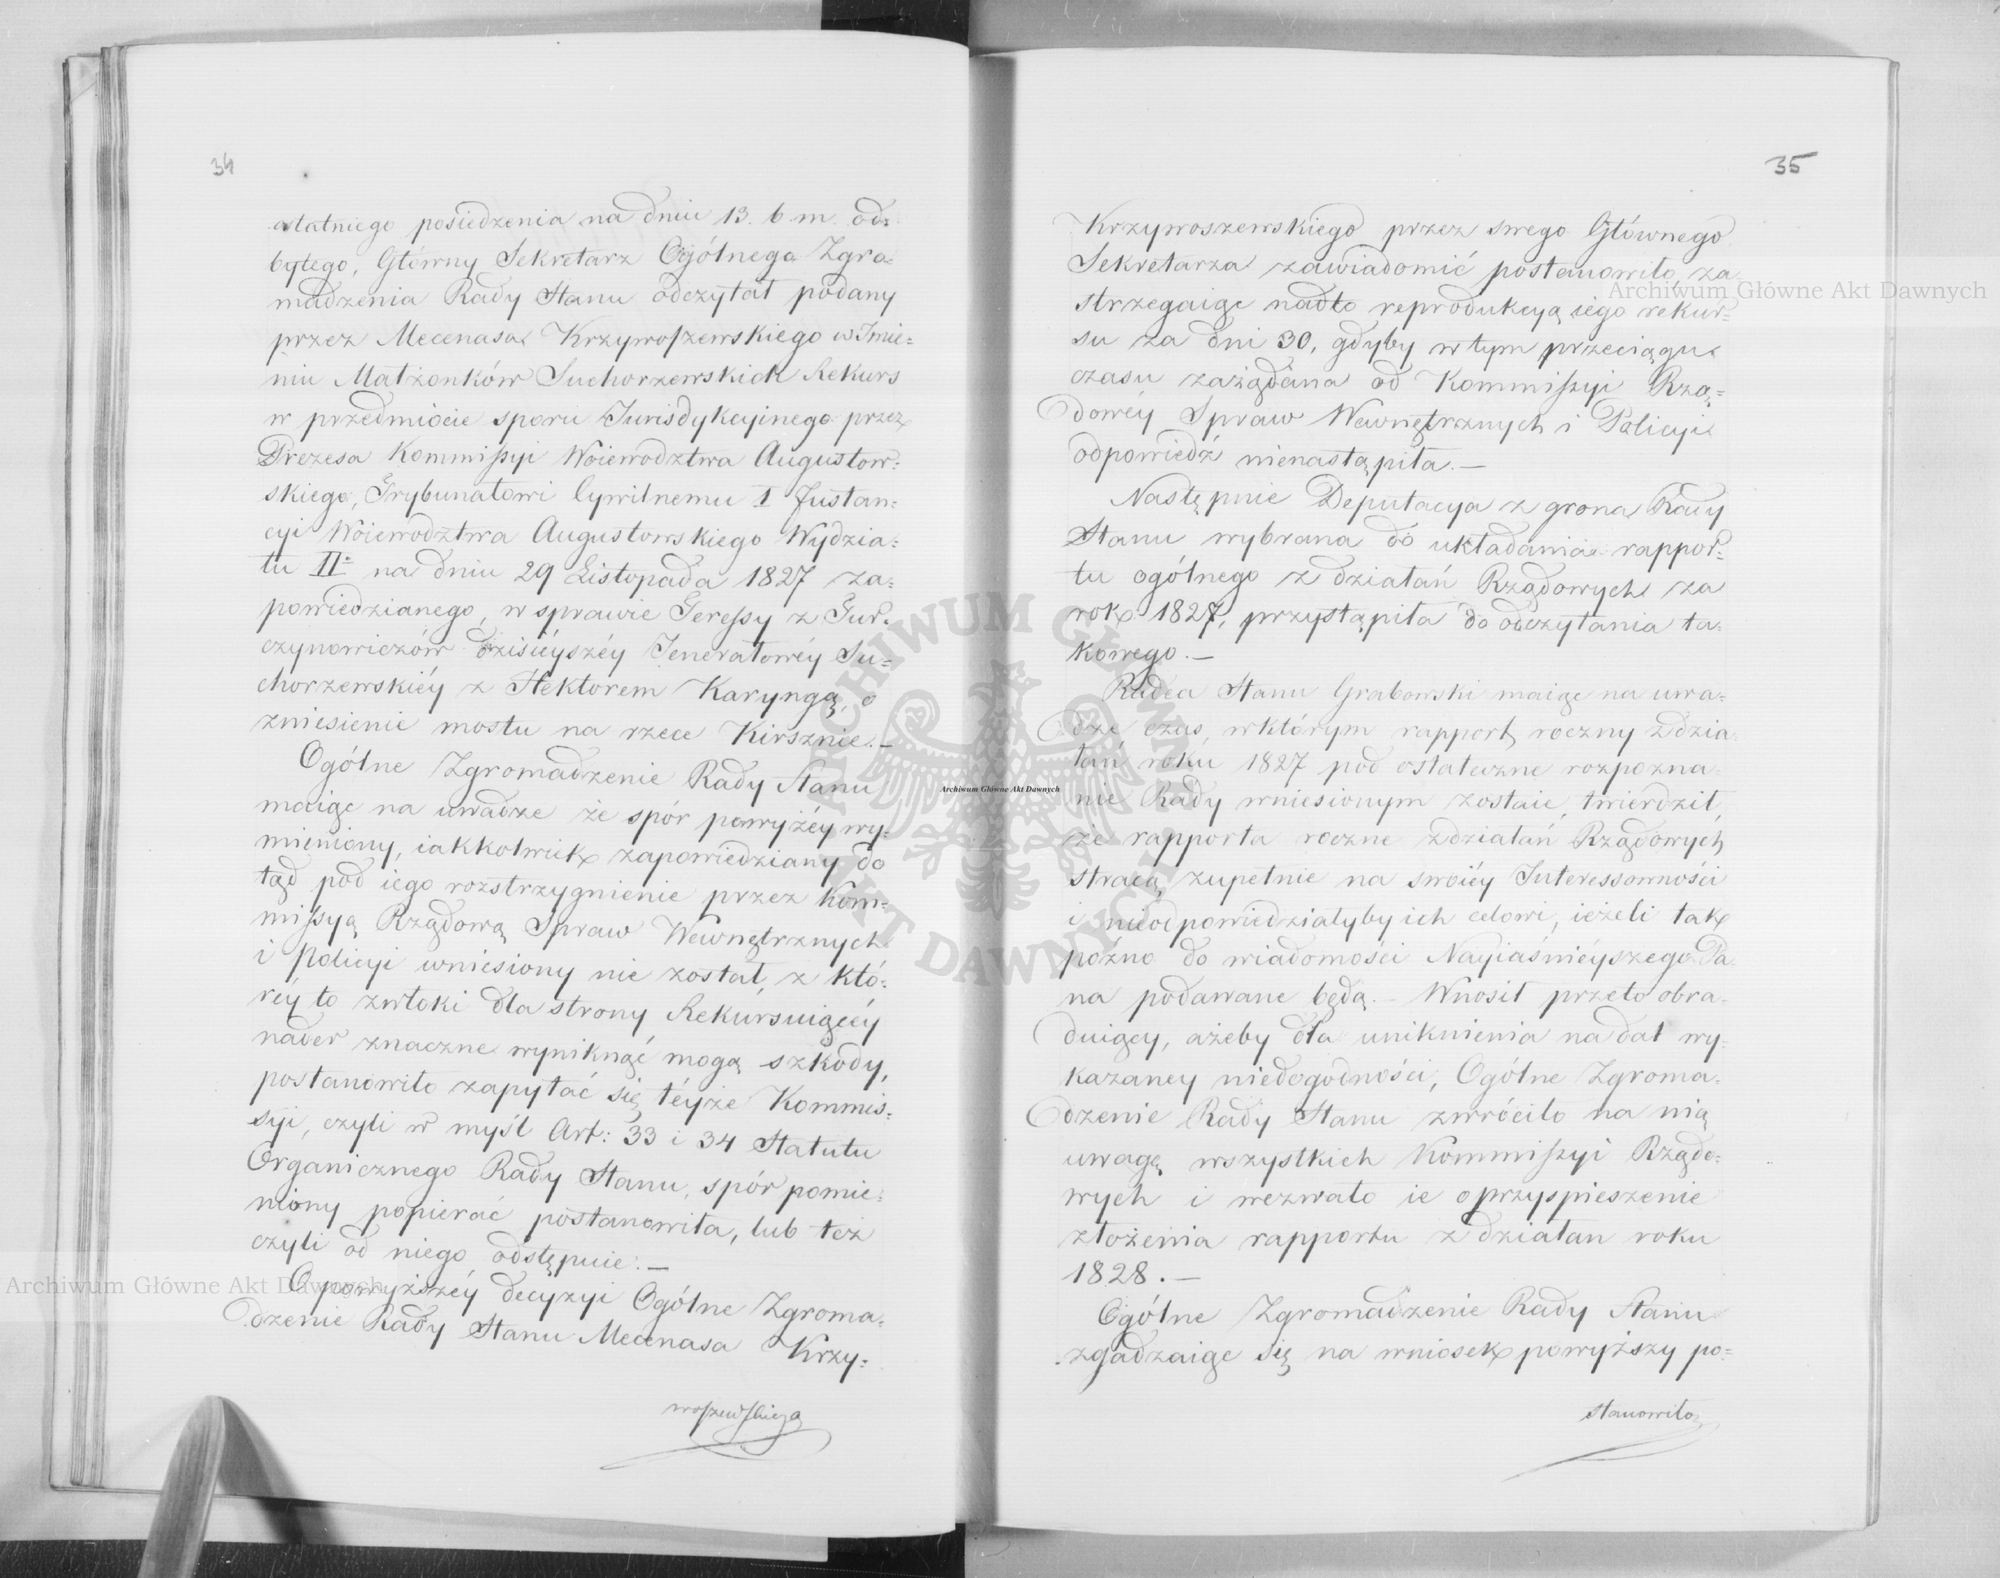 34
ostatniego posiedzenia na dniu 13. b. m. od=
bytego, Główny Sekretarz Ogólnego Zgro=
madzenia Rady Stanu odczytał podany
przez Mecenasa Krzywoszewskiego w Imie=
niu Małżonków Suchorzewskich Rekurs
w przedmiocie sporu Jurisdykcyinego przez
Prezesa Kommissyi Woiewodztwa Augustow=
skiego, Trybunałowi Cywilnemu I Instan=
cyi Woiewodztwa Augustowskiego Wydzia=
łu II° na dniu 29 Listopada 1827 za=
powiedzianego, w sprawie Teressy z Gur=
czynowiczów dzisiéyszéy Jenerałowéy Su=
chorzewskiéy z Hektorem Karyngą, o
zniesienie mostu na rzece Kirsznie.—
Ogólne Zgromadzenie Rady Stanu
maiąc na uwadze że spór powyżéy wy=
mieniony, iakkolwiek zapowiedziany do
tąd pod iego rozstrzygnienie przez Kom=
missyą Rządową Spraw Wewnętrznych
i Policyi wniesiony nie został, z któ=
réy to zwłoki dla strony Rekursuiącéy
nader znaczne wyniknąć mogą szkody,
postanowiło zapytać się téyże Kommis=
syi, czyli w myśl Art: 33 i 34 Statutu
Organicznego Rady Stanu, spór pomie=
niony popierać postanowiła, lub też
czyli od niego odstępuie.—
O powyższéy decyzyi Ogólne Zgroma=
dzenie Rady Stanu Mecenasa Krzy=
woszewskiego
35
Krzywoszewskiego przez swego Głównego
Sekretarza zawiadomić postanowiło, za
strzegaiąc nadto reprodukcyą iego rekur=
su za dni 30, gdyby w tym przeciągu
czasu zażądana od Kommissyi Rzą=
dowéy Spraw Wewnętrznych i Policyi
odpowiedź nienastąpiła.—
Następnie Deputacya z grona Rady
Stanu wybrana do układania rappor=
tu ogólnego z działań Rządowych za
rok 1827, przystąpiła do odczytania ta=
kowego.—
Radca Stanu Grabowski maiąc na uwa=
dze czas, w którym rapport roczny z dzia=
łań roku 1827 pod ostateczne rozpozna=
nie Rady wniesionym zostaie, twierdził,
że rapporta roczne z działań Rządowych
stracą zupełnie na swoiéy Interessowności
i nieodpowiedziałyby ich celowi, ieżeli tak
późno do wiadomości Nayiaśniéyszego Pa=
na podawane będą.— Wnosił przeto obra=
duiący, ażeby dla uniknienia nadal wy=
kazaney niedogodności, Ogólne Zgroma=
dzenie Rady Stanu zwróciło na nią
uwagę wszystkich Kommissyi Rządo=
wych i wezwało ie o przyspieszenie
złożenia rapportu z działan roku
1828.—
Ogólne Zgromadzenie Rady Stanu
zgadzaiąc się na wniosek powyższy po=
stanowiło
Archiwum Główne Akt Dawnych
Archiwum Główne Akt Dawnych
Archiwum Główne Akt Dawnych
ARCHIWUM GŁÓWNE AKT DAWNYCH